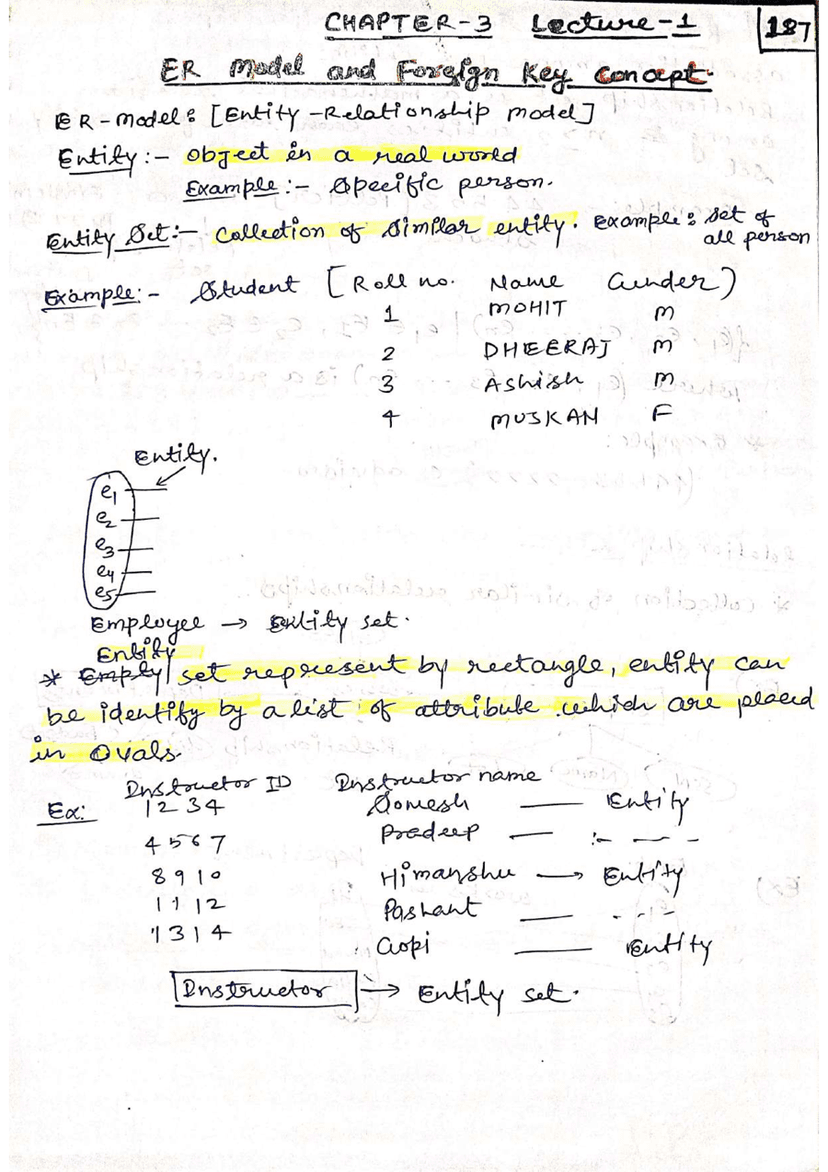 CHAPTER-3 Lecture-1 187
ER Model and Foreign Key Concept.
ER-model: [Entity-Relationship model]
Entity:- Object in a real world
Example:- Specific person.
Entity Set:- Collection of similar entity. Example: set of
all person
Example:- Student [Roll no. Name Gunder)
1 MOHIT M
2 DHEERAJ M
3 Ashish M
4 MUSKAN F
Entity.
e1
e2
e3
e4
e5
Employee → Entity set.
Entity
* Empty set represent by rectangle, entity can
be identify by a list of attribute which are placed
in Ovals.
Instructor ID Instructor name
Ex: 1234 Somesh — Entity
4567 Pradeep — :- - -
8910 Himanshu → Entity
1112 Pashant — - - -
1314 Gopi — Entity
Instructor → Entity set.